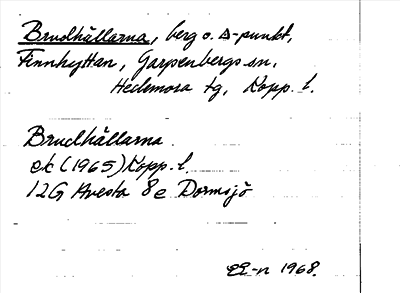 Brudhällarna, berg o. Δ-punkt,
Finnhyttan, Garpenbergs sn,
Hedemora tg, Kopp. l.
Brudhällarna
ek (1965) Kopp. l.
12G Avesta 8e Dormsjö
EE-n 1968.